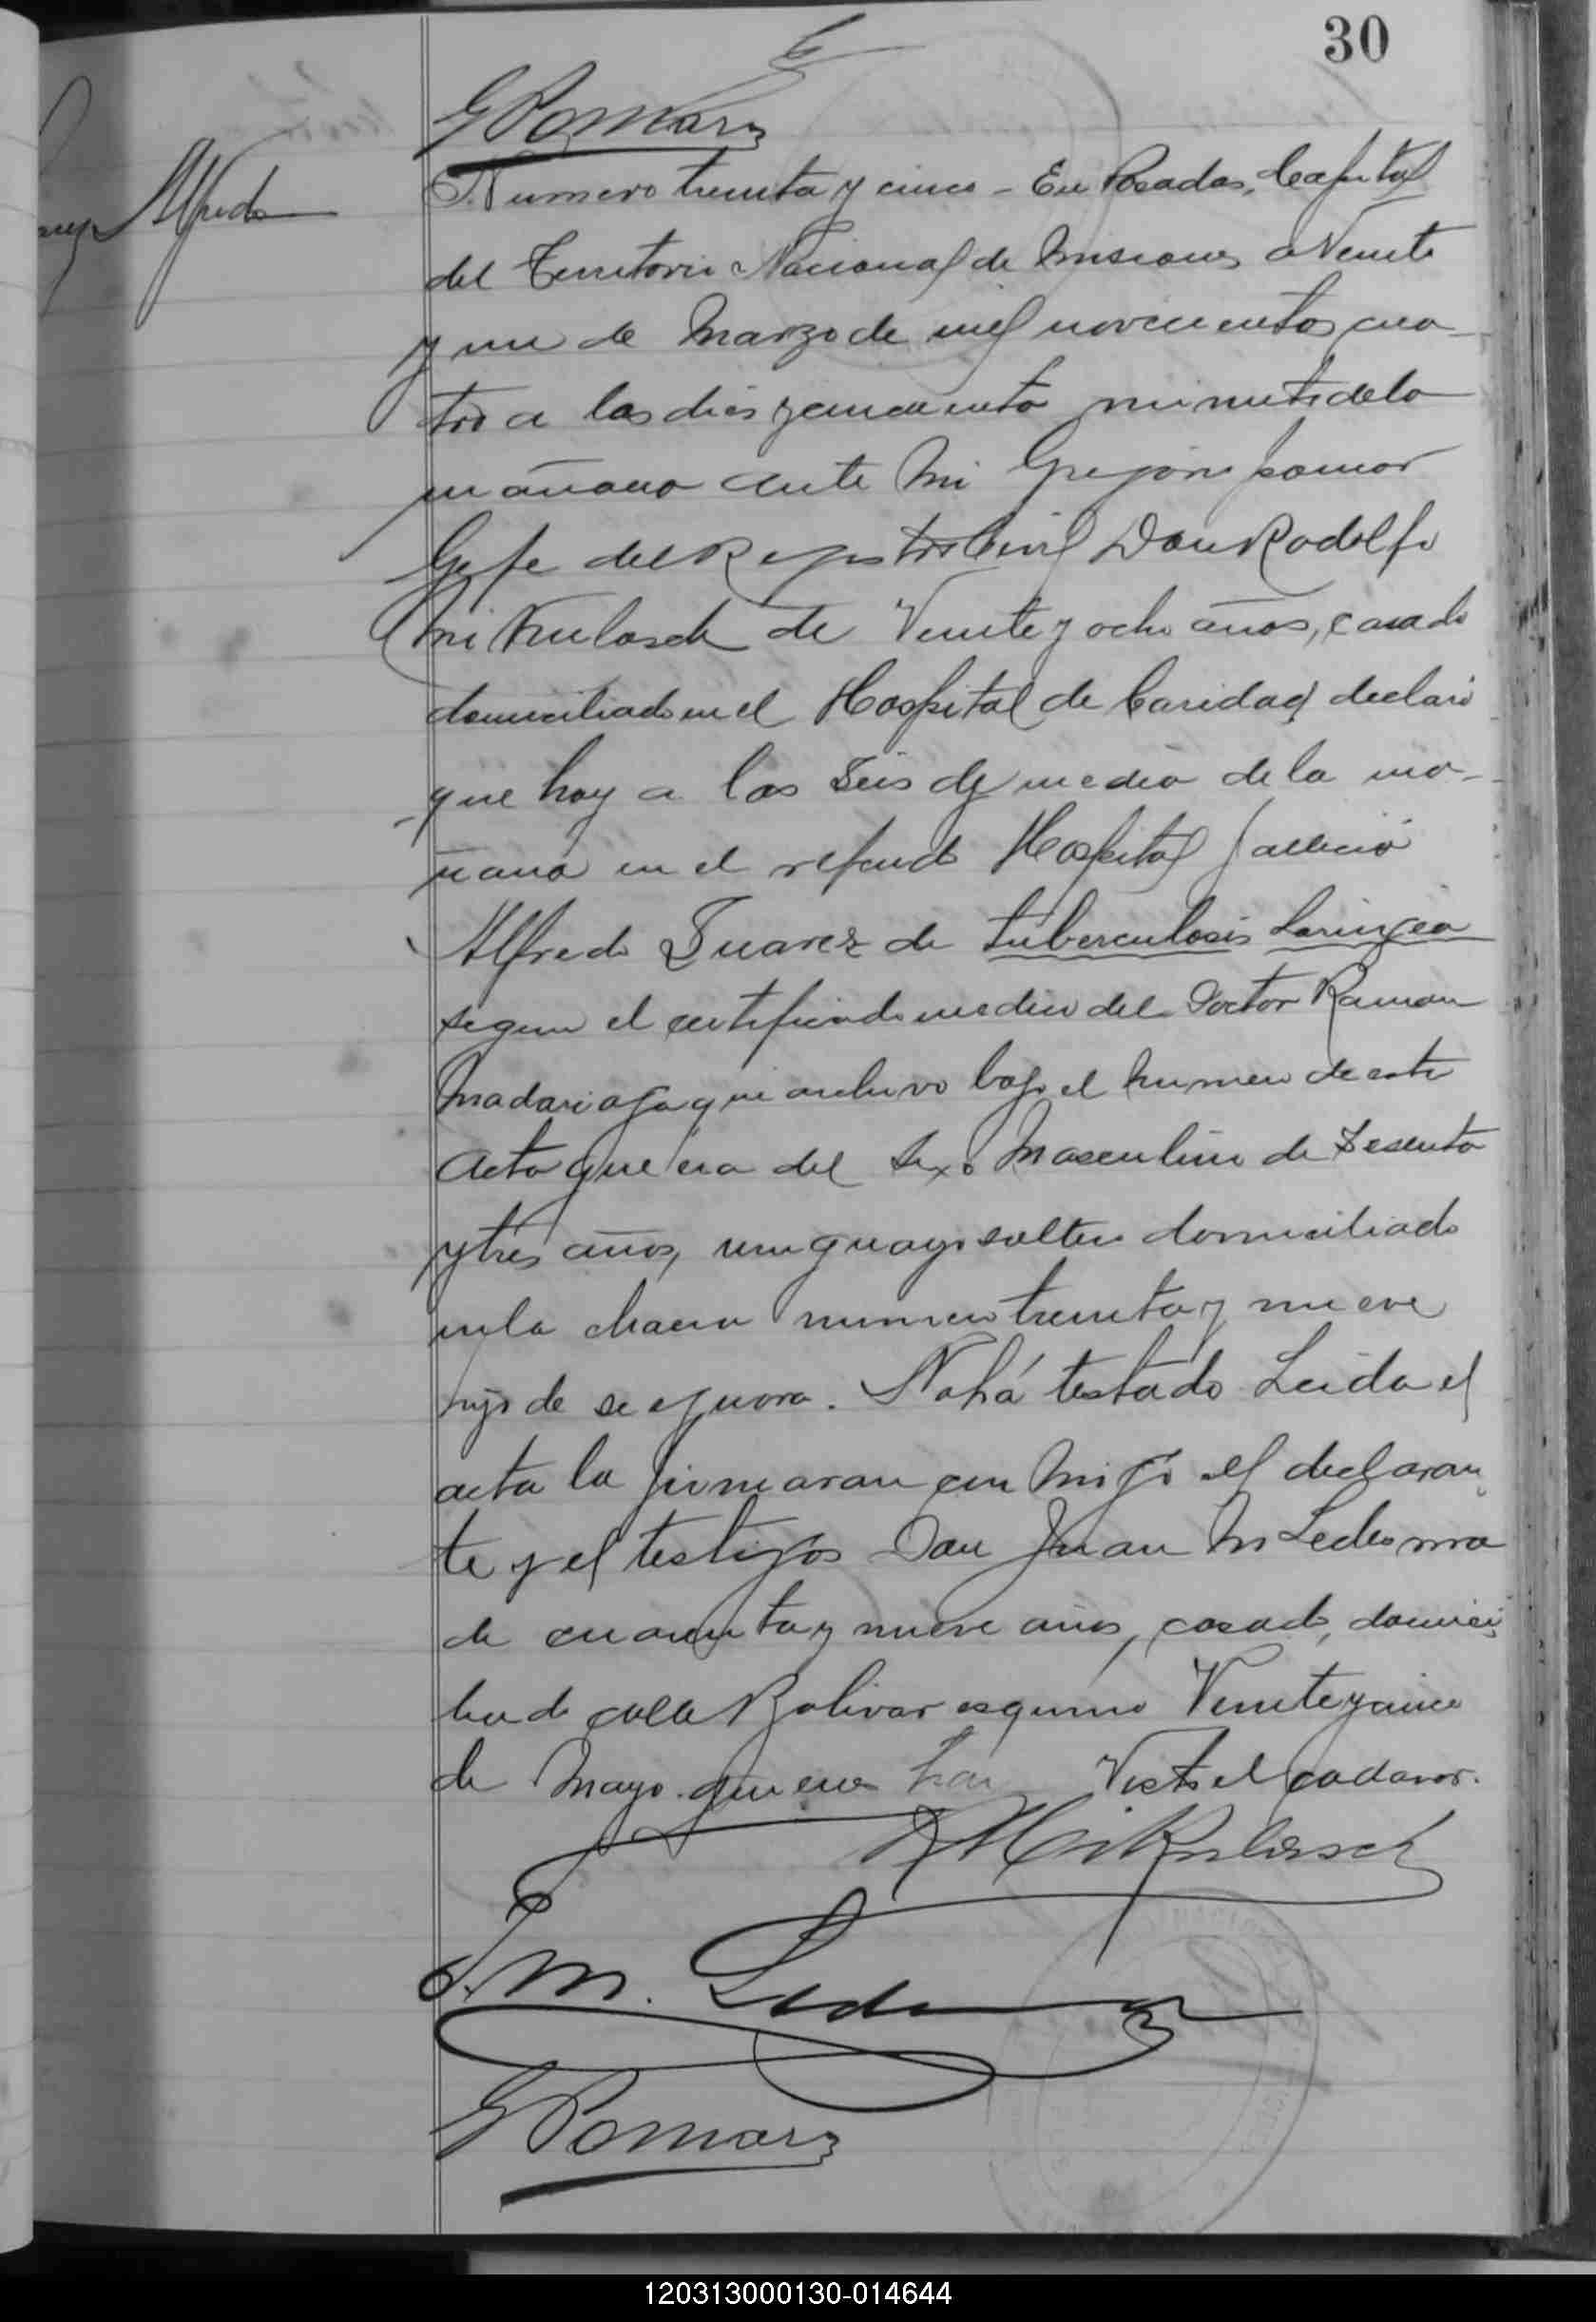 30
GPomar
Alfredo
Numero treinta y cinco - En Posadas, Capital
del Territorio Nacional de Misiones a Veinte
y un de Marzo de mil novecientos cua-
tro a las dies y cincuenta minutos de la
mañana ante mi Gregorio Pomar
Gefe del Registro Civil Don Rodolfo
Mikulasch de Veinte y ocho años, casado
domiciliado en el Hospital de Caridad declaró
que hoy a las Seis y media de la ma-
ñana en el referido Hospital falleció
Alfredo Suarez de tuberculosis Laringea
segun el certificado medico del Doctor Ramon
Madariaga que archivo bajo el numero de esta
acta que era del sexo Masculino de Sesenta
y tres años, uruguayo soltero domiciliado
en la chacra numero treinta y nueve
hijo de se ignora. No há testado Leida el
acta la firmaran con migo el declaran
te y el testigos Don Juan M Ledesma
de cuarenta y nueve años, casado, domici
liado calle Bolivar esquina Veinte y cinco
de Mayo quienes han Visto el cadaver.
R Mikulasch
J. M. Ledesma
GPomar
120313000130-014644